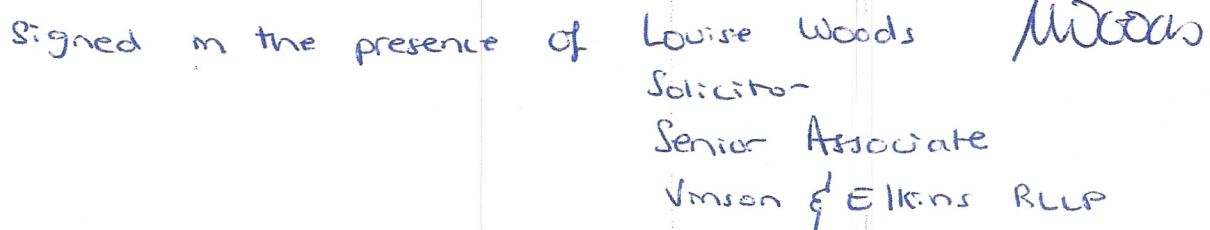 Signed in the presence of Louise Woods LWoods
Solicitor
Senior Associate
Vinson & Elkins RLLP